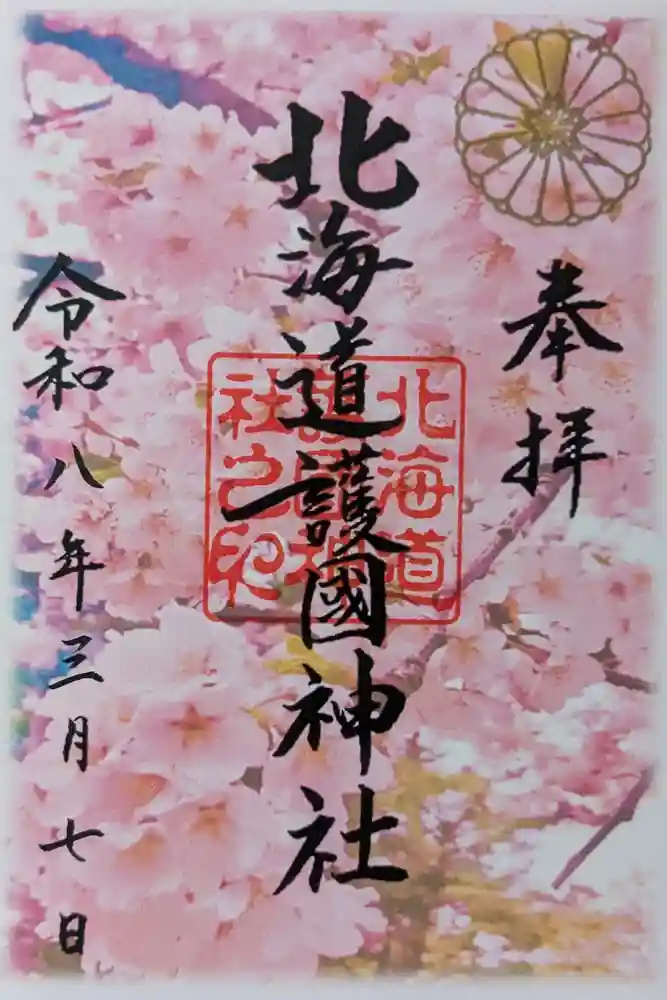 奉拝
北海道護國神社
北海道
護國神
社之印
令和八年三月七日